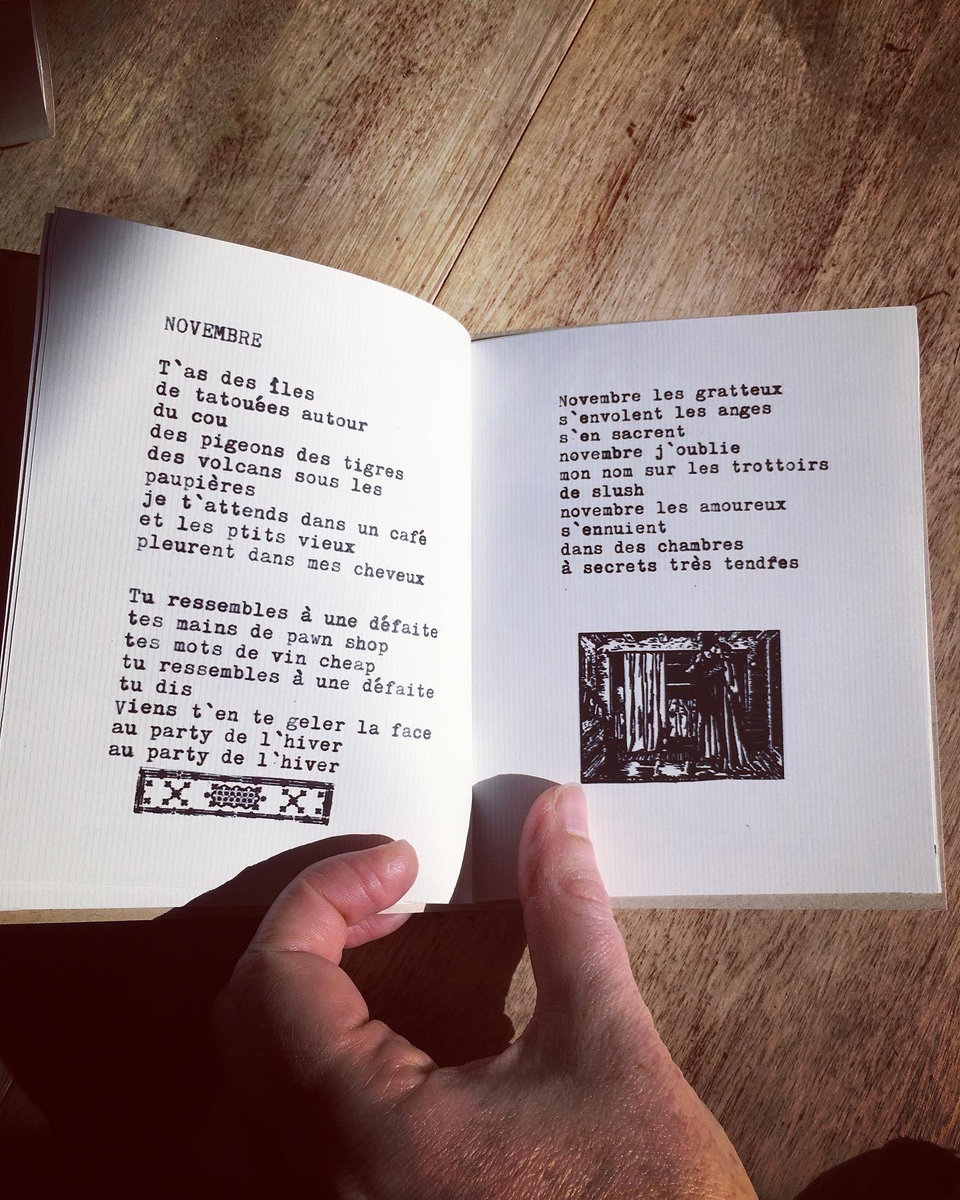 NOVEMBRE
T`as des îles
de tatouées autour
du cou
des pigeons des tigres
des volcans sous les
paupières
je t`attends dans un café
et les ptits vieux
pleurent dans mes cheveux
Tu ressembles à une défaite
tes mains de pawn shop
tes mots de vin cheap
tu ressembles à une défaite
tu dis
Viens t`en te geler la face
au party de l`hiver
au party de l`hiver
Novembre les gratteux
s`envolent les anges
s`en sacrent
novembre j`oublie
mon nom sur les trottoirs
de slush
novembre les amoureux
s`ennuient
dans des chambres
à secrets très tendres